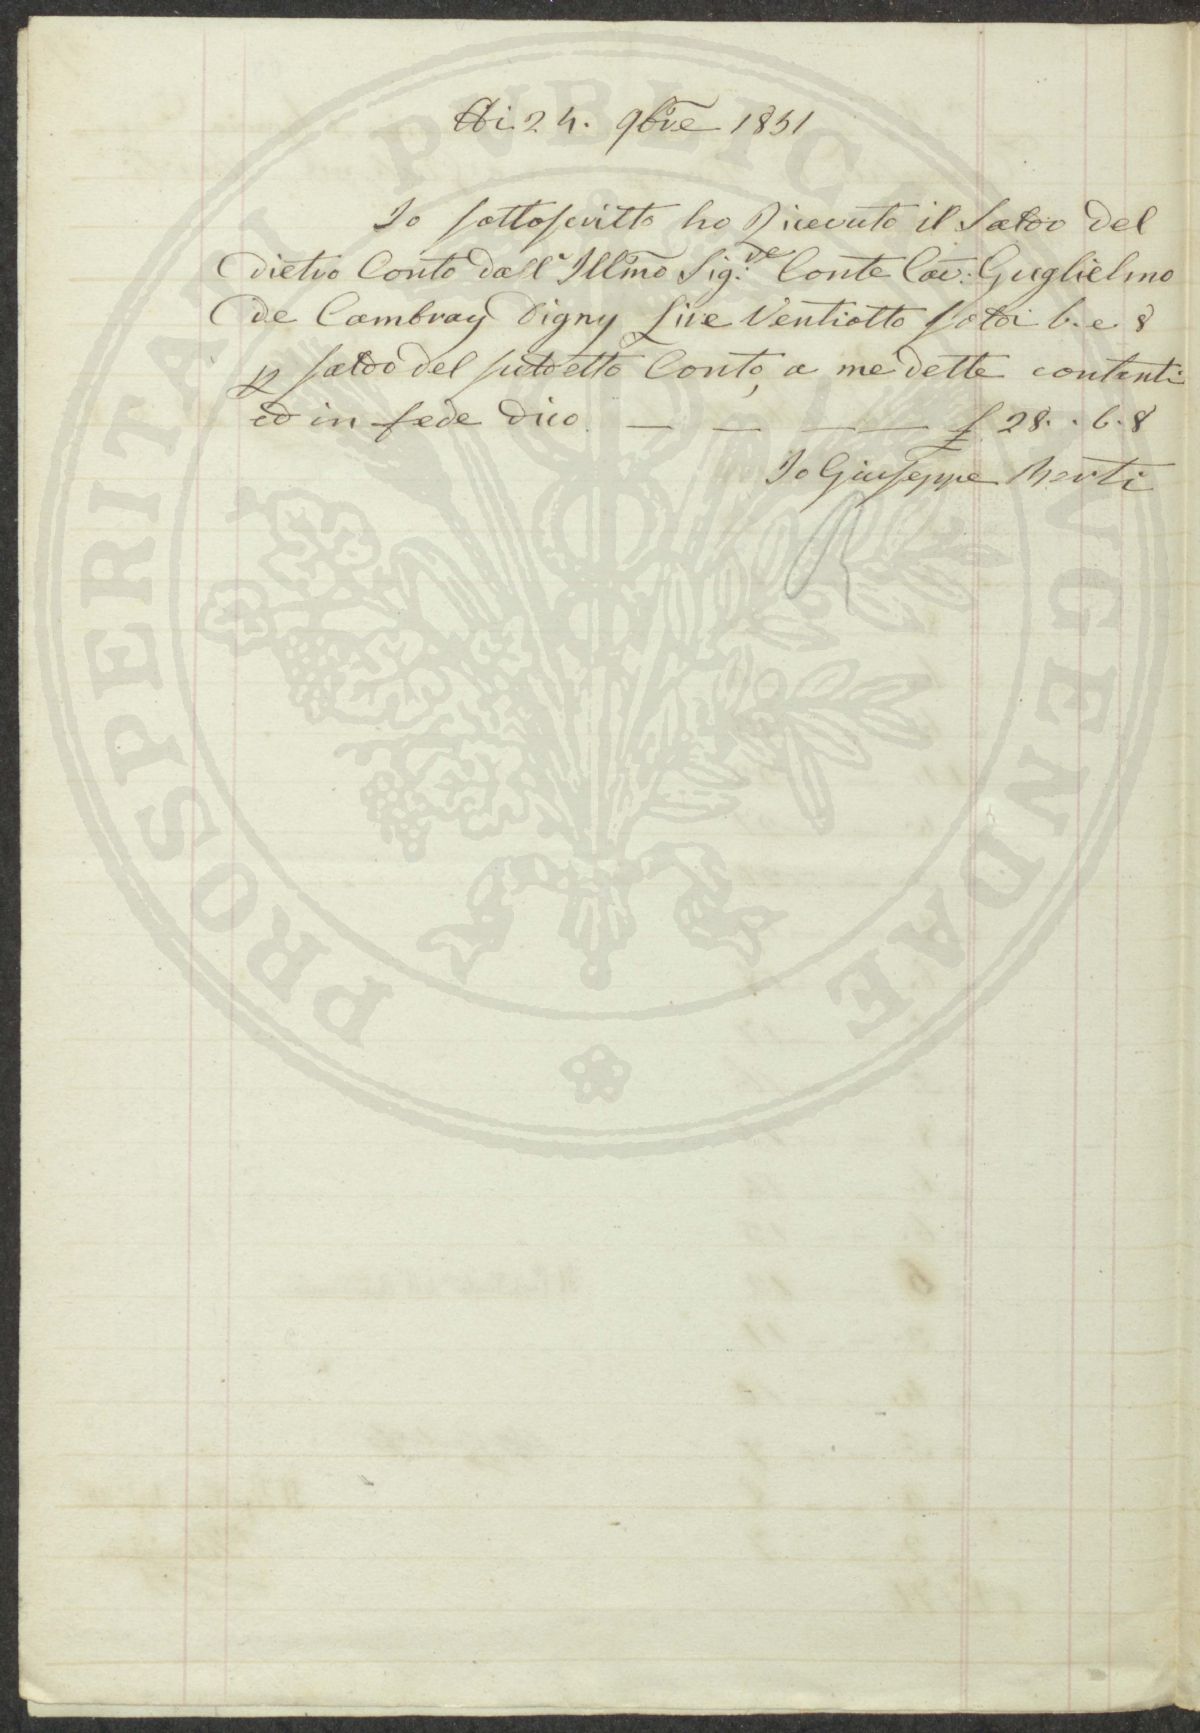 Adi 24. 9bre 1851
Io sottoscritto ho Ricevuto il Saldo del
dietro Conto dall' Illmo Sig.re Conte Cav. Guglielmo
de Cambray Digny Lire Ventiotto soldi 6. e 8
p saldo del suddetto Conto, a me dette contanti
ed in fede dico — — — — £ 28. . 6. 8
Io Giuseppe Berti
PROSPERITATI PVBLICAE AVGENDAE